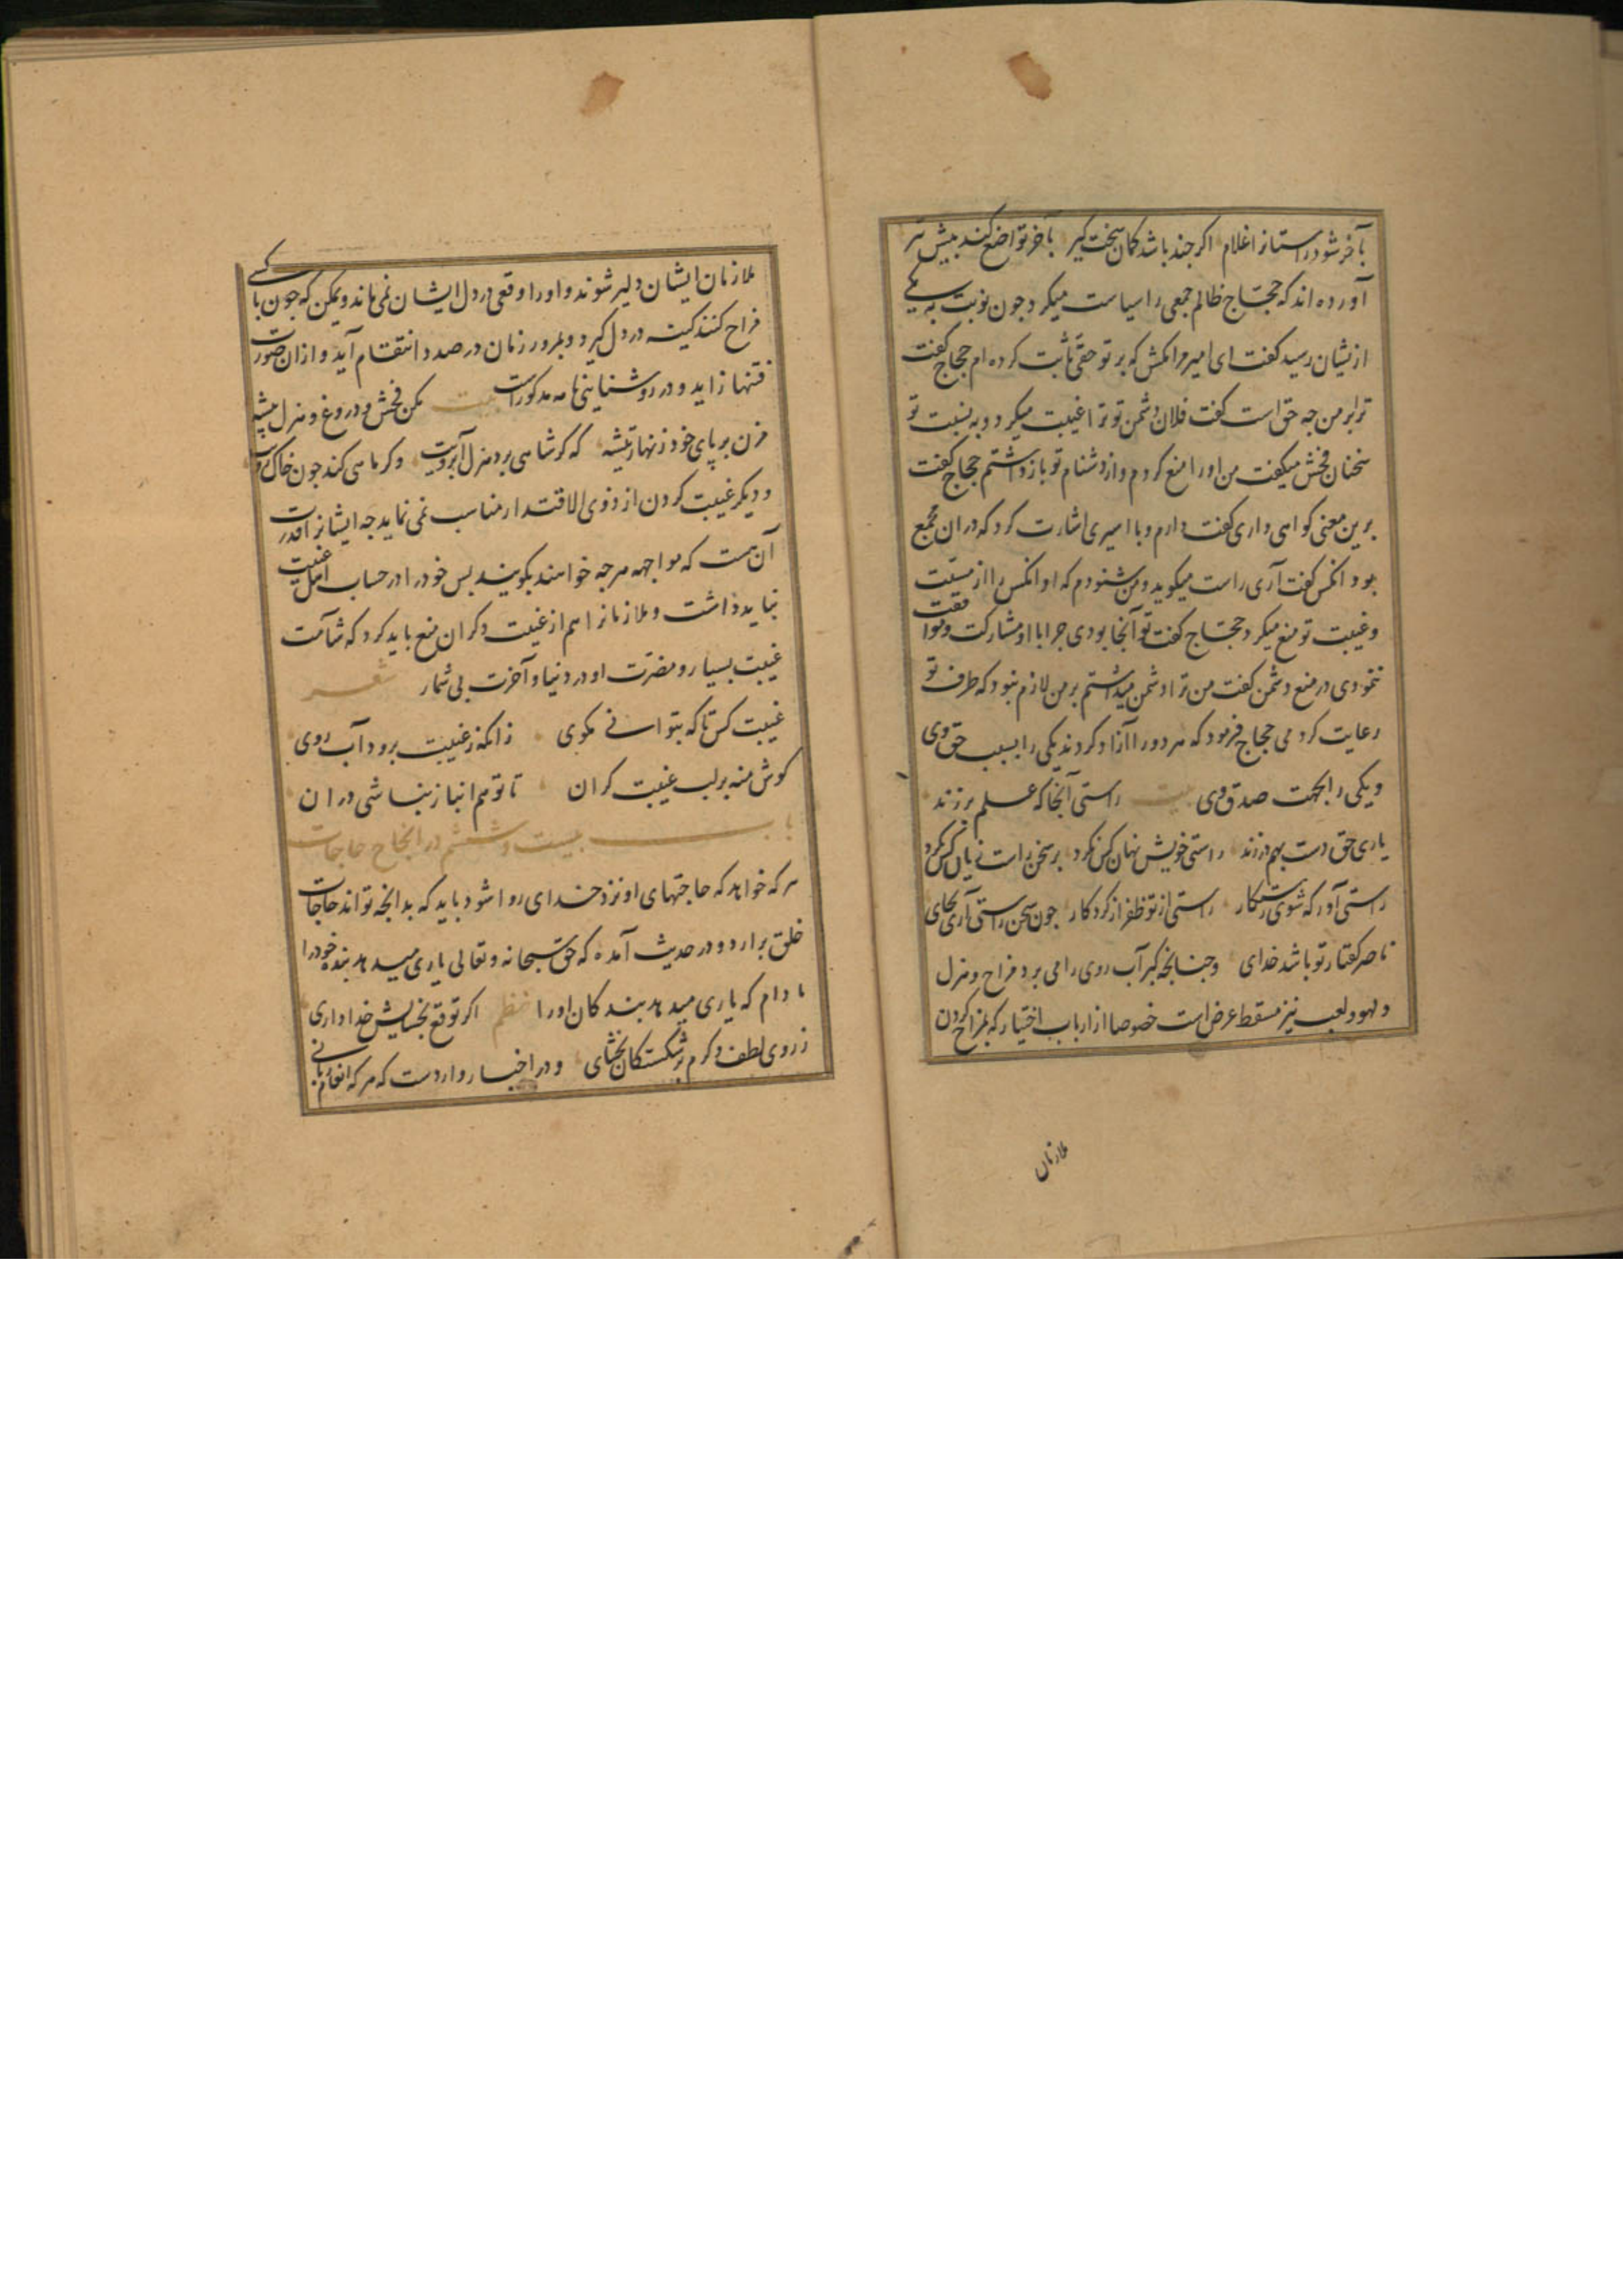 بآخر شود راستانرا غلام اکر جند باشد کمان سخت کیر بآخر تواضع کند بیش تیر
آورده اند که حجاج ظالم جمعی را سیاست میکرد جون نوبت به یکی
ازیشان رسید کفت ای امیر مرا مکش که بر تو حقی ثابت کرده ام حجاج کفت
ترا بر من جه حق است کفت فلان دشمن تو ترا غیبت میکرد و به نسبت تو
سخنان فحش میکفت من اورا منع کردم و از دشنام تو باز داشتم حجاج کفت
برین معنی کواهی داری کفت دارم و با امیری اشارت کرد که دران مجمع
بود انکس کفت آری راست میکوید و من شنودم که او انکس را از مسبّت
و غیبت تو منع میکرد حجاج کفت تو آنجا بودی جرا با او مشارکت و موافقت
ننمودی در منع دشمن کفت من ترا دشمن میداشتم بر من لازم نبود که طرف تو
رعایت کردمی حجاج فرمود که هر دو را آزاد کردند یکی را بسبب حق وی
و یکی را بجهت صدق وی بیت راستی آنجا که علم بر زند
یاری حق دست بهم در زند راستی خویش نهان کس نکرد بر سخن راست زیان کس نکرد
راستی آور که شوی رستکار راستی از تو ظفر از کردکار جون سخن راستی آری بجای
ناصر کفتار تو باشد خدای و جنانجه کبر آب روی را می برد مزاح و هزل
و لهو و لعب نیز مسقط عرض است خصوصا از ارباب اختیار که بمزاح کردن
ملازمان
ملازمان ایشان دلیر شوند و اورا وقعی در دل ایشان نمی ماند و یمکن که جون با کسی
مزاح کنند کینه در دل کیرد و بمرور زمان در صدد انتقام آید و ازان صورت
فتنها زاید و در روشنایی نامه مذکورست بیت مکن فحش و دروغ و هزل پیشه
مزن بر پای خود زنهار تیشه که کر شاهی برد هزل آبرویت وکر ماهی کند جون خاک کویت
و دیکر غیبت کردن از ذوی الاقتدار مناسب نمی نماید جه ایشانرا قدرت
آن هست که مواجهه هرجه خواهند بکویند بس خود را در حساب اهل غیبت
نباید داشت و ملازمانرا هم از غیبت دکران منع باید کرد که شآمت
غیبت بسیار و مضرّت او در دنیا و آخرت بی شمار شعر
غیبت کس تا که بتوانی مکوی زانکه ز غیبت برود آب روی
کوش منه بر لب غیبت کران تا تو هم انباز نباشی دران
باب بیست و ششم در انجاح حاجات
هر که خواهد که حاجتهای او نزد خدای روا شود باید که بدانجه تواند حاجات
خلق برارد و در حدیث آمده که حق سبحانه و تعالی یاری میدهد بنده خود را
مادام که یاری میدهد بندکان اورا نظم اکر توقع بخشایش خدا داری
ز روی لطف و کرم بر شکستکان بخشای و در اخبار واردست که هر که انعام ربانی